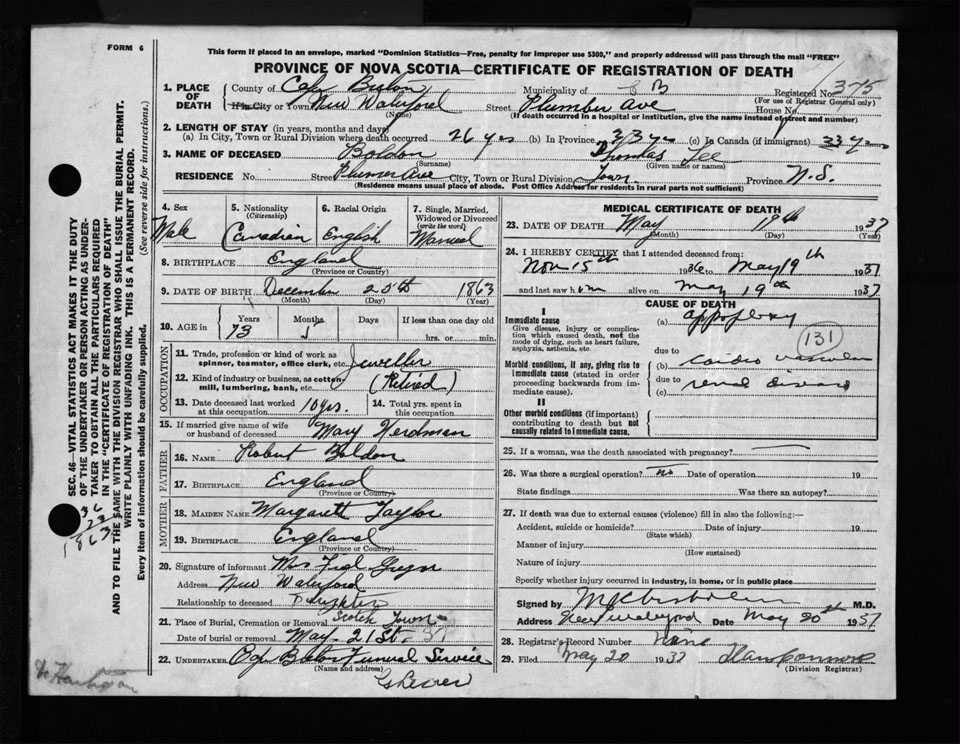 FORM 6
This form if placed in an envelope, marked "Dominion Statistics—Free, penalty for improper use $300," and properly addressed will pass through the mail "FREE"
PROVINCE OF NOVA SCOTIA—CERTIFICATE OF REGISTRATION OF DEATH
1. PLACE OF DEATH
County of Cape Breton Municipality of C B Registered No. 375
(For use of Registrar General only)
If in City or Town New Waterford Street Plumber Ave House No.
(Name) (If death occurred in a hospital or institution, give the name instead of street and number)
2. LENGTH OF STAY (in years, months and days)
(a) In City, Town or Rural Division where death occurred 26 yrs (b) In Province 33 yrs (c) In Canada (if immigrant) 33 yrs
3. NAME OF DECEASED Boldon Thomas Lee
(Surname) (Given name or names)
RESIDENCE No. Street Plumer Ave City, Town or Rural Division Town Province N.S.
(Residence means usual place of abode. Post Office Address for residents in rural parts not sufficient)
4. Sex Male
5. Nationality (Citizenship) Canadian
6. Racial Origin English
7. Single, Married, Widowed or Divorced (write the word) Married
8. BIRTHPLACE England
(Province or Country)
9. DATE OF BIRTH December 25th 1863
(Month) (Day) (Year)
10. AGE in Years 73 Months 5 Days If less than one day old
hrs. or min.
OCCUPATION
11. Trade, profession or kind of work as spinner, teamster, office clerk, etc. Jeweller
12. Kind of industry or business, as cotton mill, lumbering, bank, etc. (Retired)
13. Date deceased last worked at this occupation 10 yrs.
14. Total yrs. spent in this occupation
15. If married give name of wife or husband of deceased Mary Herdman
FATHER
16. NAME Robert Boldon
17. BIRTHPLACE England
(Province or Country)
MOTHER
18. MAIDEN NAME Margarett Taylor
19. BIRTHPLACE England
(Province or Country)
20. Signature of informant Mrs Fred
Address New Waterford
Relationship to deceased Daughter
21. Place of Burial, Cremation or Removal Scotch Town
Date of burial or removal May 21st. 37
22. UNDERTAKER Cape Breton Funeral Service
(Name and address)
MEDICAL CERTIFICATE OF DEATH
23. DATE OF DEATH May 19th 1937
(Month) (Day) (Year)
24. I HEREBY CERTIFY that I attended deceased from
Nov 15th 1936 to May 19th 1937
and last saw him alive on May 19th 1937
CAUSE OF DEATH
I
Immediate cause
Give disease, injury or complication which caused death, not the mode of dying, such as heart failure, asphyxia, asthenia, etc.
(a) Appoplexy
131
Morbid conditions, if any, giving rise to immediate cause (stated in order proceeding backwards from immediate cause).
due to
(b) Cardio vascular
due to
(c) renal disease
II
Other morbid conditions (if important) contributing to death but not causally related to immediate cause.
25. If a woman, was the death associated with pregnancy?
26. Was there a surgical operation? no Date of operation 19
State findings Was there an autopsy?
27. If death was due to external causes (violence) fill in also the following:—
Accident, suicide or homicide? Date of injury 19
(State which)
Manner of injury
(How sustained)
Nature of injury
Specify whether injury occurred in industry, in home, or in public place
Signed by M.D.
Address New Waterford Date May 20th 1937
28. Registrar's Record Number
29. Filed May 20 1937
(Division Registrar)
SEC. 46—VITAL STATISTICS ACT MAKES IT THE DUTY
OF THE UNDERTAKER OR PERSON ACTING AS UNDER-
TAKER TO OBTAIN ALL THE PARTICULARS REQUIRED
IN THE "CERTIFICATE OF REGISTRATION OF DEATH"
AND TO FILE THE SAME WITH THE DIVISION REGISTRAR WHO SHALL ISSUE THE BURIAL PERMIT.
WRITE PLAINLY WITH UNFADING INK. THIS IS A PERMANENT RECORD.
Every item of information should be carefully supplied. (See reverse side for instructions.)
36
73
1863